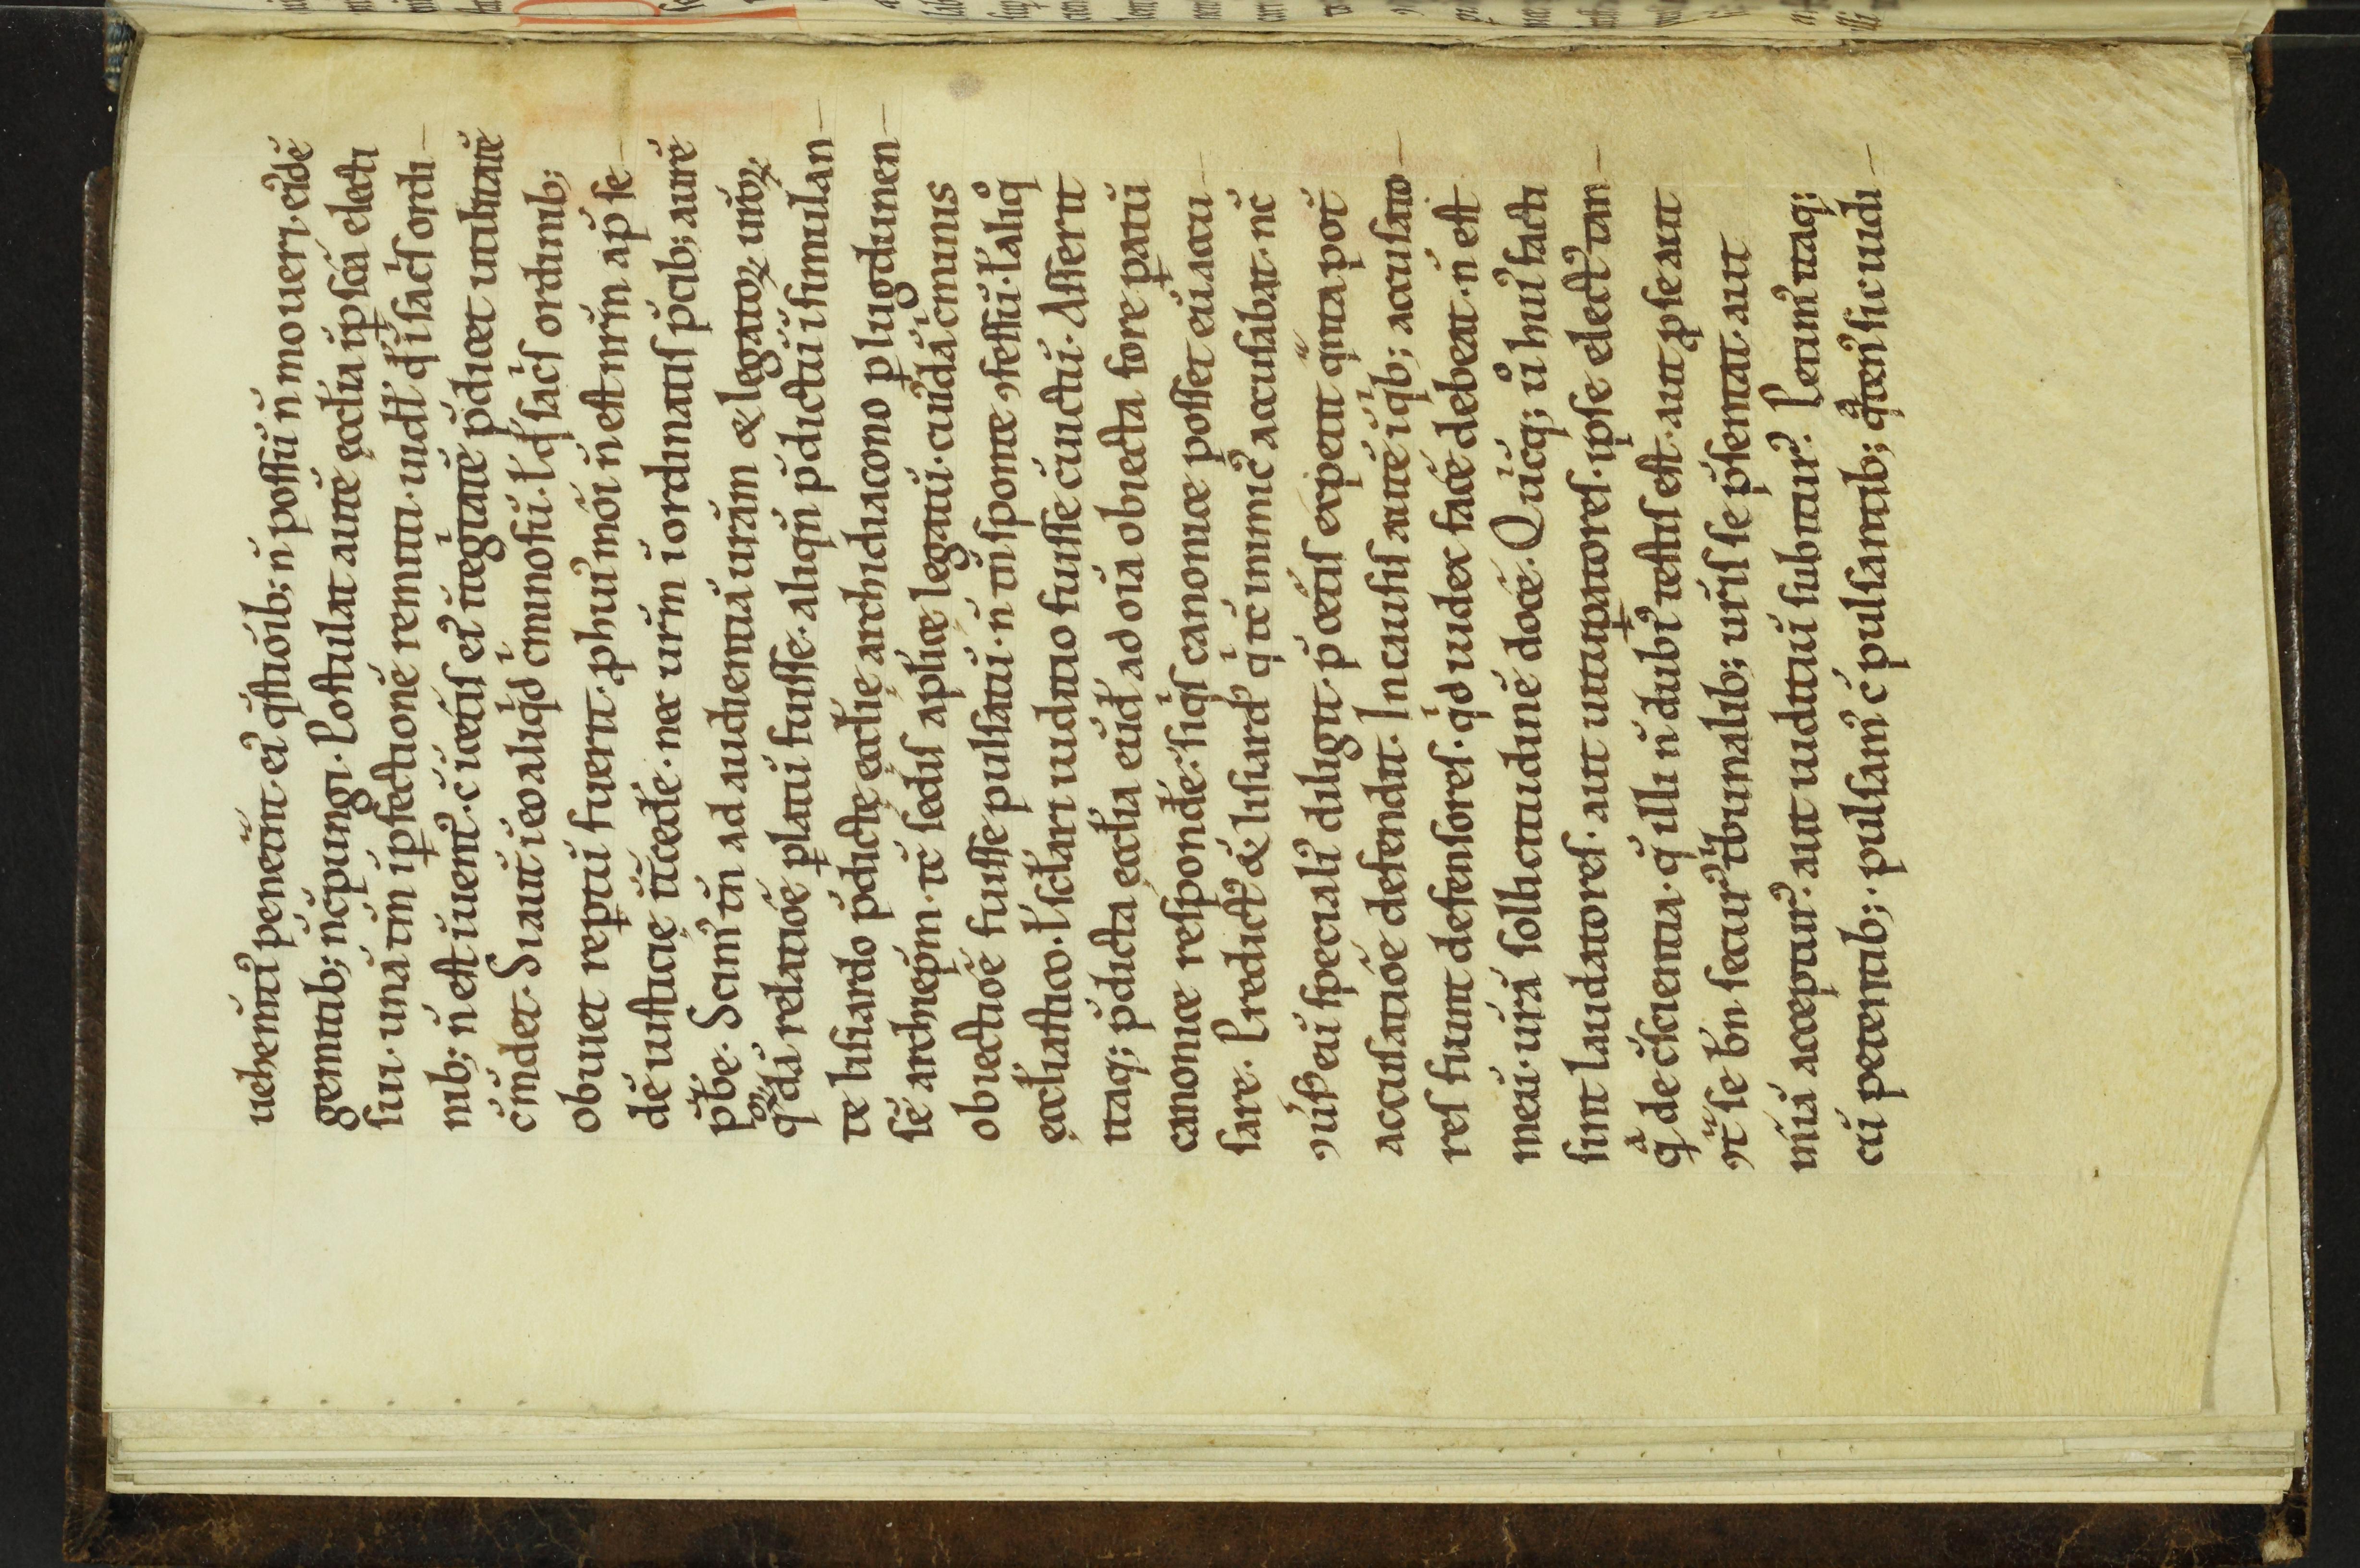 uehem̅t᷒ penet̅nt· ei᷒ q̅stio̅ib;· n̅ possu̅ n̅ moueri· eide̅
gemitib;· n̅ c̅pungi· Postulat aute̅ eccl̅ia ip̅sc̅a electi
sui· una̅ tm̅ i̅ꝑfectione̅ remitti· uidel̅ qͥ i̅ sacͥs ordi-
nib;· n̅ est i̅uent᷒· c̅ i̅ cet̅is ei᷒ i̅tegͥtate̅ p̅dicet utilitate̅
c̅m̅det· Si aut̅ i̅ eo aliqͥd cͥminosu̅· l̵ q̅ sacͥs ordinib;
obuiet reꝑtu̅ fuerit· ꝓ hui᷒mo̅i n̅ est nr̅m ap̅ se-
de̅ iusticie̜ i̅t̅cede̅· nec ur̅m i̅ordinatis p̅cib; aure̅
p̅be̅· Scim᷒ tn̅ ad audientia̅ ur̅am & legatoꝝ ur̅oꝝ
qͦꝝda̅ relatio̅e ꝑlatu̅ fuisse· aliqn̅ p̅dictu̅ i̅ simulan-
te lisiardo p̅dicte̜ eccl̅ie̜ archidiacono ꝑ lugdunen-
se̅ archiep̅m· tc̅ sedis apl̅ice legatu̅· cui᷒da̅ cͥminis
obiectio̅e fuisse pulsatu̅· n̅ tn̅ sponte ꝯfessu̅· l̵ aliqͦ
e̜ccl̅iastico· l̵ sc̅lari iuditio fuisse c̅uictu̅· Asserit
itaq; p̅dicta eccl̅ia eu̅d̅ ad oi̅a obiecta fore ꝑatu̅
canonice respond̅e· siqͥs canonice posset eu̅ accu-
sare· Predict᷒ & lisiard᷒ qͥ tc̅ inimic᷒ accusabat· nc̅
ꝯu̅s᷒ eu̅ speciali᷒ diligit· p̅ cet̅is expetit qͣntu̅ pot̅
accusatio̅e defendit· In causis aute̅ i̅iqͥb; accusato-
res sunt defensores· qͥd iudex face̅ debeat· n̅ est
meu̅· ur̅a̅ sollicitudine̅ doce̅· Qͥ̅cu̅q; u̅ᵒ hui᷒ facti
sint laudatores· aut uitupatores· ipse elect᷒ tan-
qͣ de c̅scientia· q̅ illi n̅ dubi᷒ testis est· aut ꝓ se aut
ꝯt̅ se bn̅ secur᷒ tͥbunalib; ur̅is se p̅sentat· aut
m̅ia̅ accepturͬ· aut iuditiu̅ subitur᷒· Petim᷒ itaq;
cu̅ petentib;· pulsam᷒ c̅ pulsantib; qͣten᷒ sic uidi-